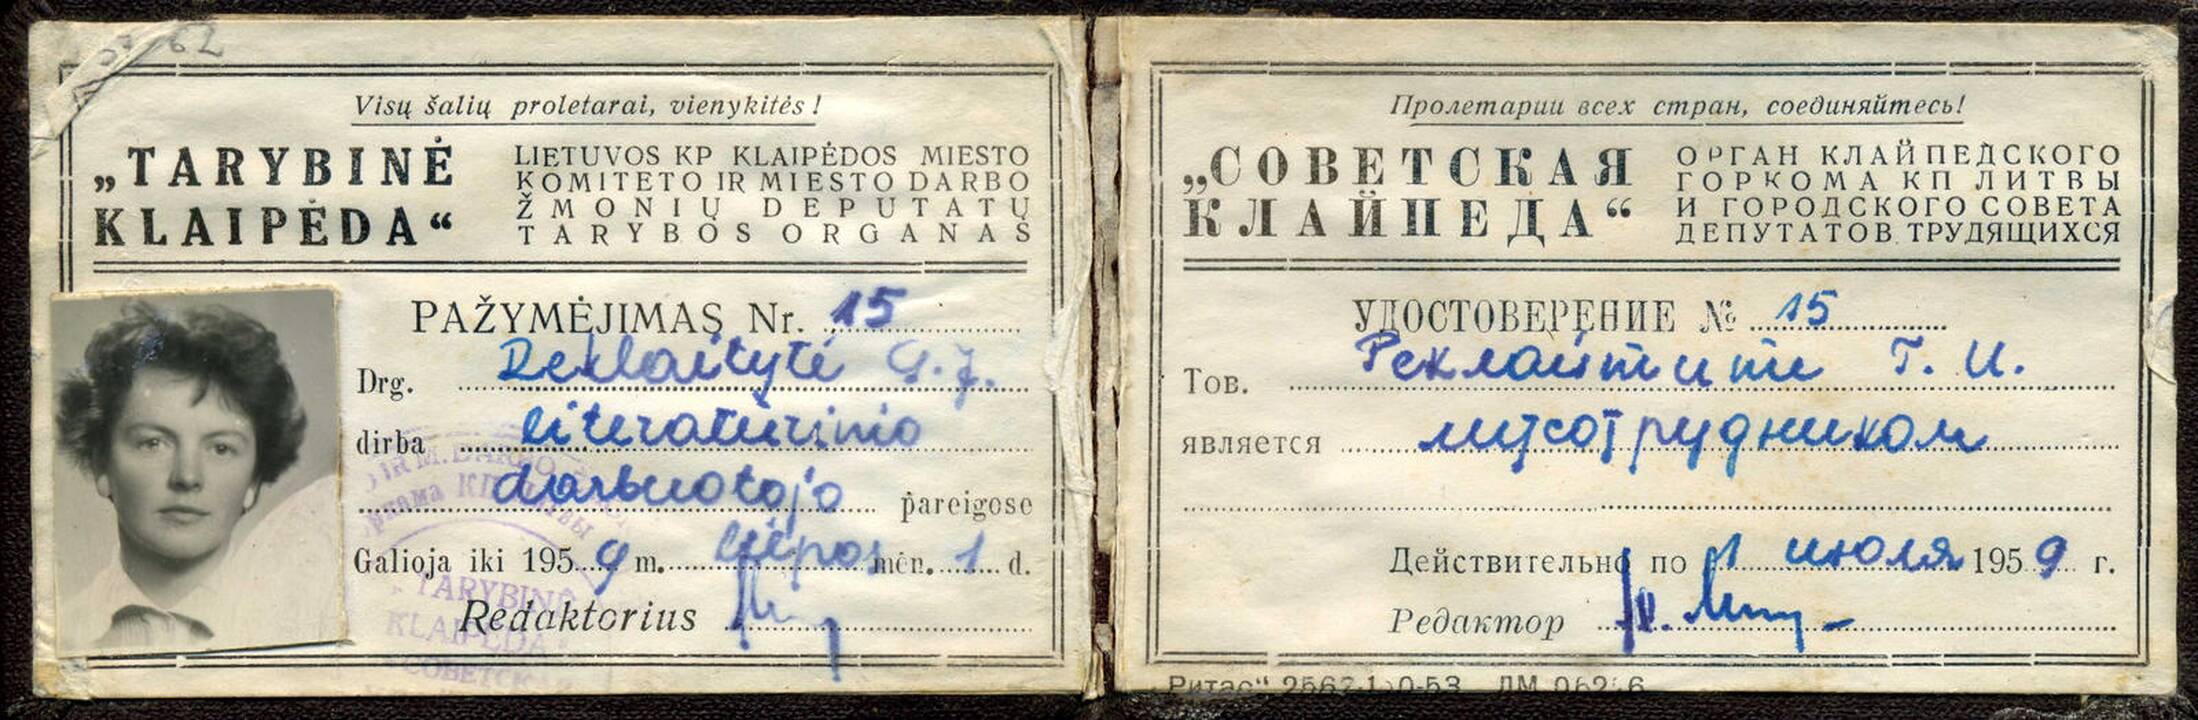 62
Visų šalių proletarai, vienykitės!
„TARYBINĖ
KLAIPĖDA“
LIETUVOS KP KLAIPĖDOS MIESTO
KOMITETO IR MIESTO DARBO
ŽMONIŲ DEPUTATŲ
TARYBOS ORGANAS
PAŽYMĖJIMAS Nr. 15
Drg. Reklaitytė G. J.
dirba literatūrinio
darbuotojo pareigose
Galioja iki 1959 m. liepos mėn. 1 d.
Redaktorius
IR M. DARBO
КП
TARYBINĖ
KLAIPĖDA
СОВЕТСКАЯ
Пролетарии всех стран, соединяйтесь!
„СОВЕТСКАЯ
КЛАЙПЕДА“
ОРГАН КЛАЙПЕДСКОГО
ГОРКОМА КП ЛИТВЫ
И ГОРОДСКОГО СОВЕТА
ДЕПУТАТОВ ТРУДЯЩИХСЯ
УДОСТОВЕРЕНИЕ № 15
Тов. Реклайтите Г. И.
является литсотрудником
Действительно по 1 июля 1959 г.
Редактор
„Ритас“